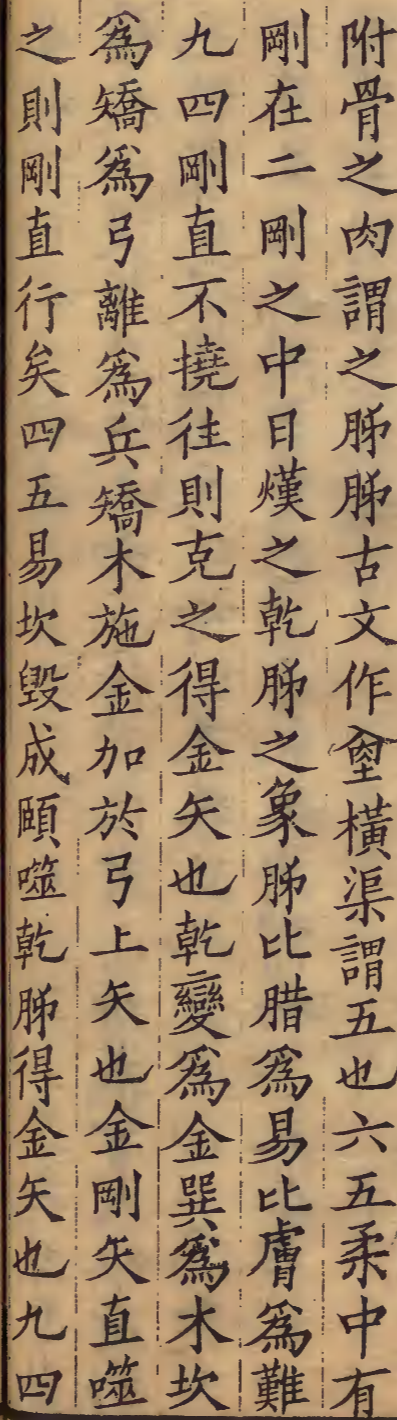 附骨之肉謂之胏胏古文作𡎺橫渠謂五也六五柔中有
剛在二剛之中日熯之乾胏之象胏比腊爲易比膚爲難
九四剛直不撓往則克之得金矢也乾變爲金巽爲木坎
爲矯爲弓離爲兵矯木施金加於弓上矢也金剛矢直噬
之則剛直行矣四五易坎毀成頤噬乾胏得金矢也九四